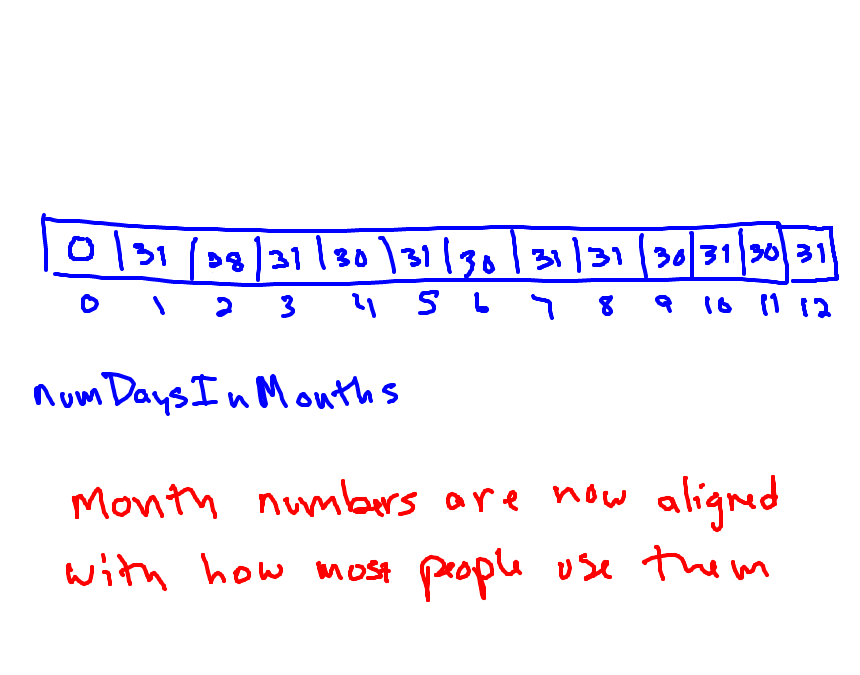 0 31 28 31 30 31 30 31 31 30 31 30 31
0 1 2 3 4 5 6 7 8 9 10 11 12
numDaysInMonths
Month numbers are now aligned
with how most people use them